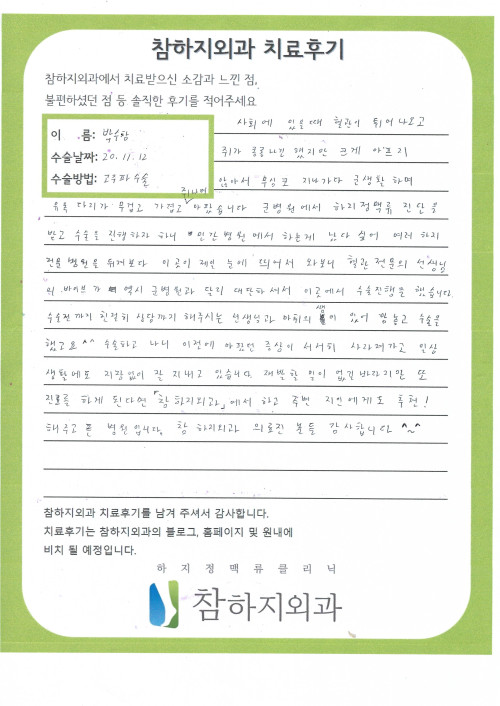 참하지외과 치료후기
참하지외과에서 치료받으신 소감과 느낀 점,
불편하셨던 점 등 솔직한 후기를 적어주세요
이 름: 박수항
수술날짜: 20. 11. 12
수술방법: 고주파수술
사회에 있을때 혈관이 튀어나오고
쥐가 종종나긴 했지만 크게 아프지
않아서 무심코 지나가다 군생활 하며
유독 다리가 무겁고 가렵고 아팠습니다 군병원에서 하지정맥류 진단을
쥐나며
받고 수술을 진행하자 하니 민간병원에서 하는게 낫다 싶어 여러 하지
전문 병원을 뒤져보다 이곳이 제일 눈에 띄어서 와보니 혈관 전문의 선생님
의 바이브가 역시 군병원과 달리 대단하셔서 이곳에서 수술진행을 했습니다.
수술전까지 친절히 상담까지 해주시는 선생님과 이 있어 놓고 수술을
했고요 ^^ 수술하고 나니 이전에 아팠던 증상이 서서히 사라져가고 일상
생활에도 지장없이 잘 지내고 있습니다. 재발할 일이 없길 바라지만 또
진료를 하게 된다면 "참하지외과"에서 하고 주변 지인에게도 추천!
해주고픈 병원입니다. 참 하지외과 의료진 분들 감사합니다 ^~^
참하지외과 치료후기를 남겨 주셔서 감사합니다.
치료후기는 참하지외과의 블로그, 홈페이지 및 원내에
비치 될 예정입니다.
하지정맥류클리닉
참하지외과